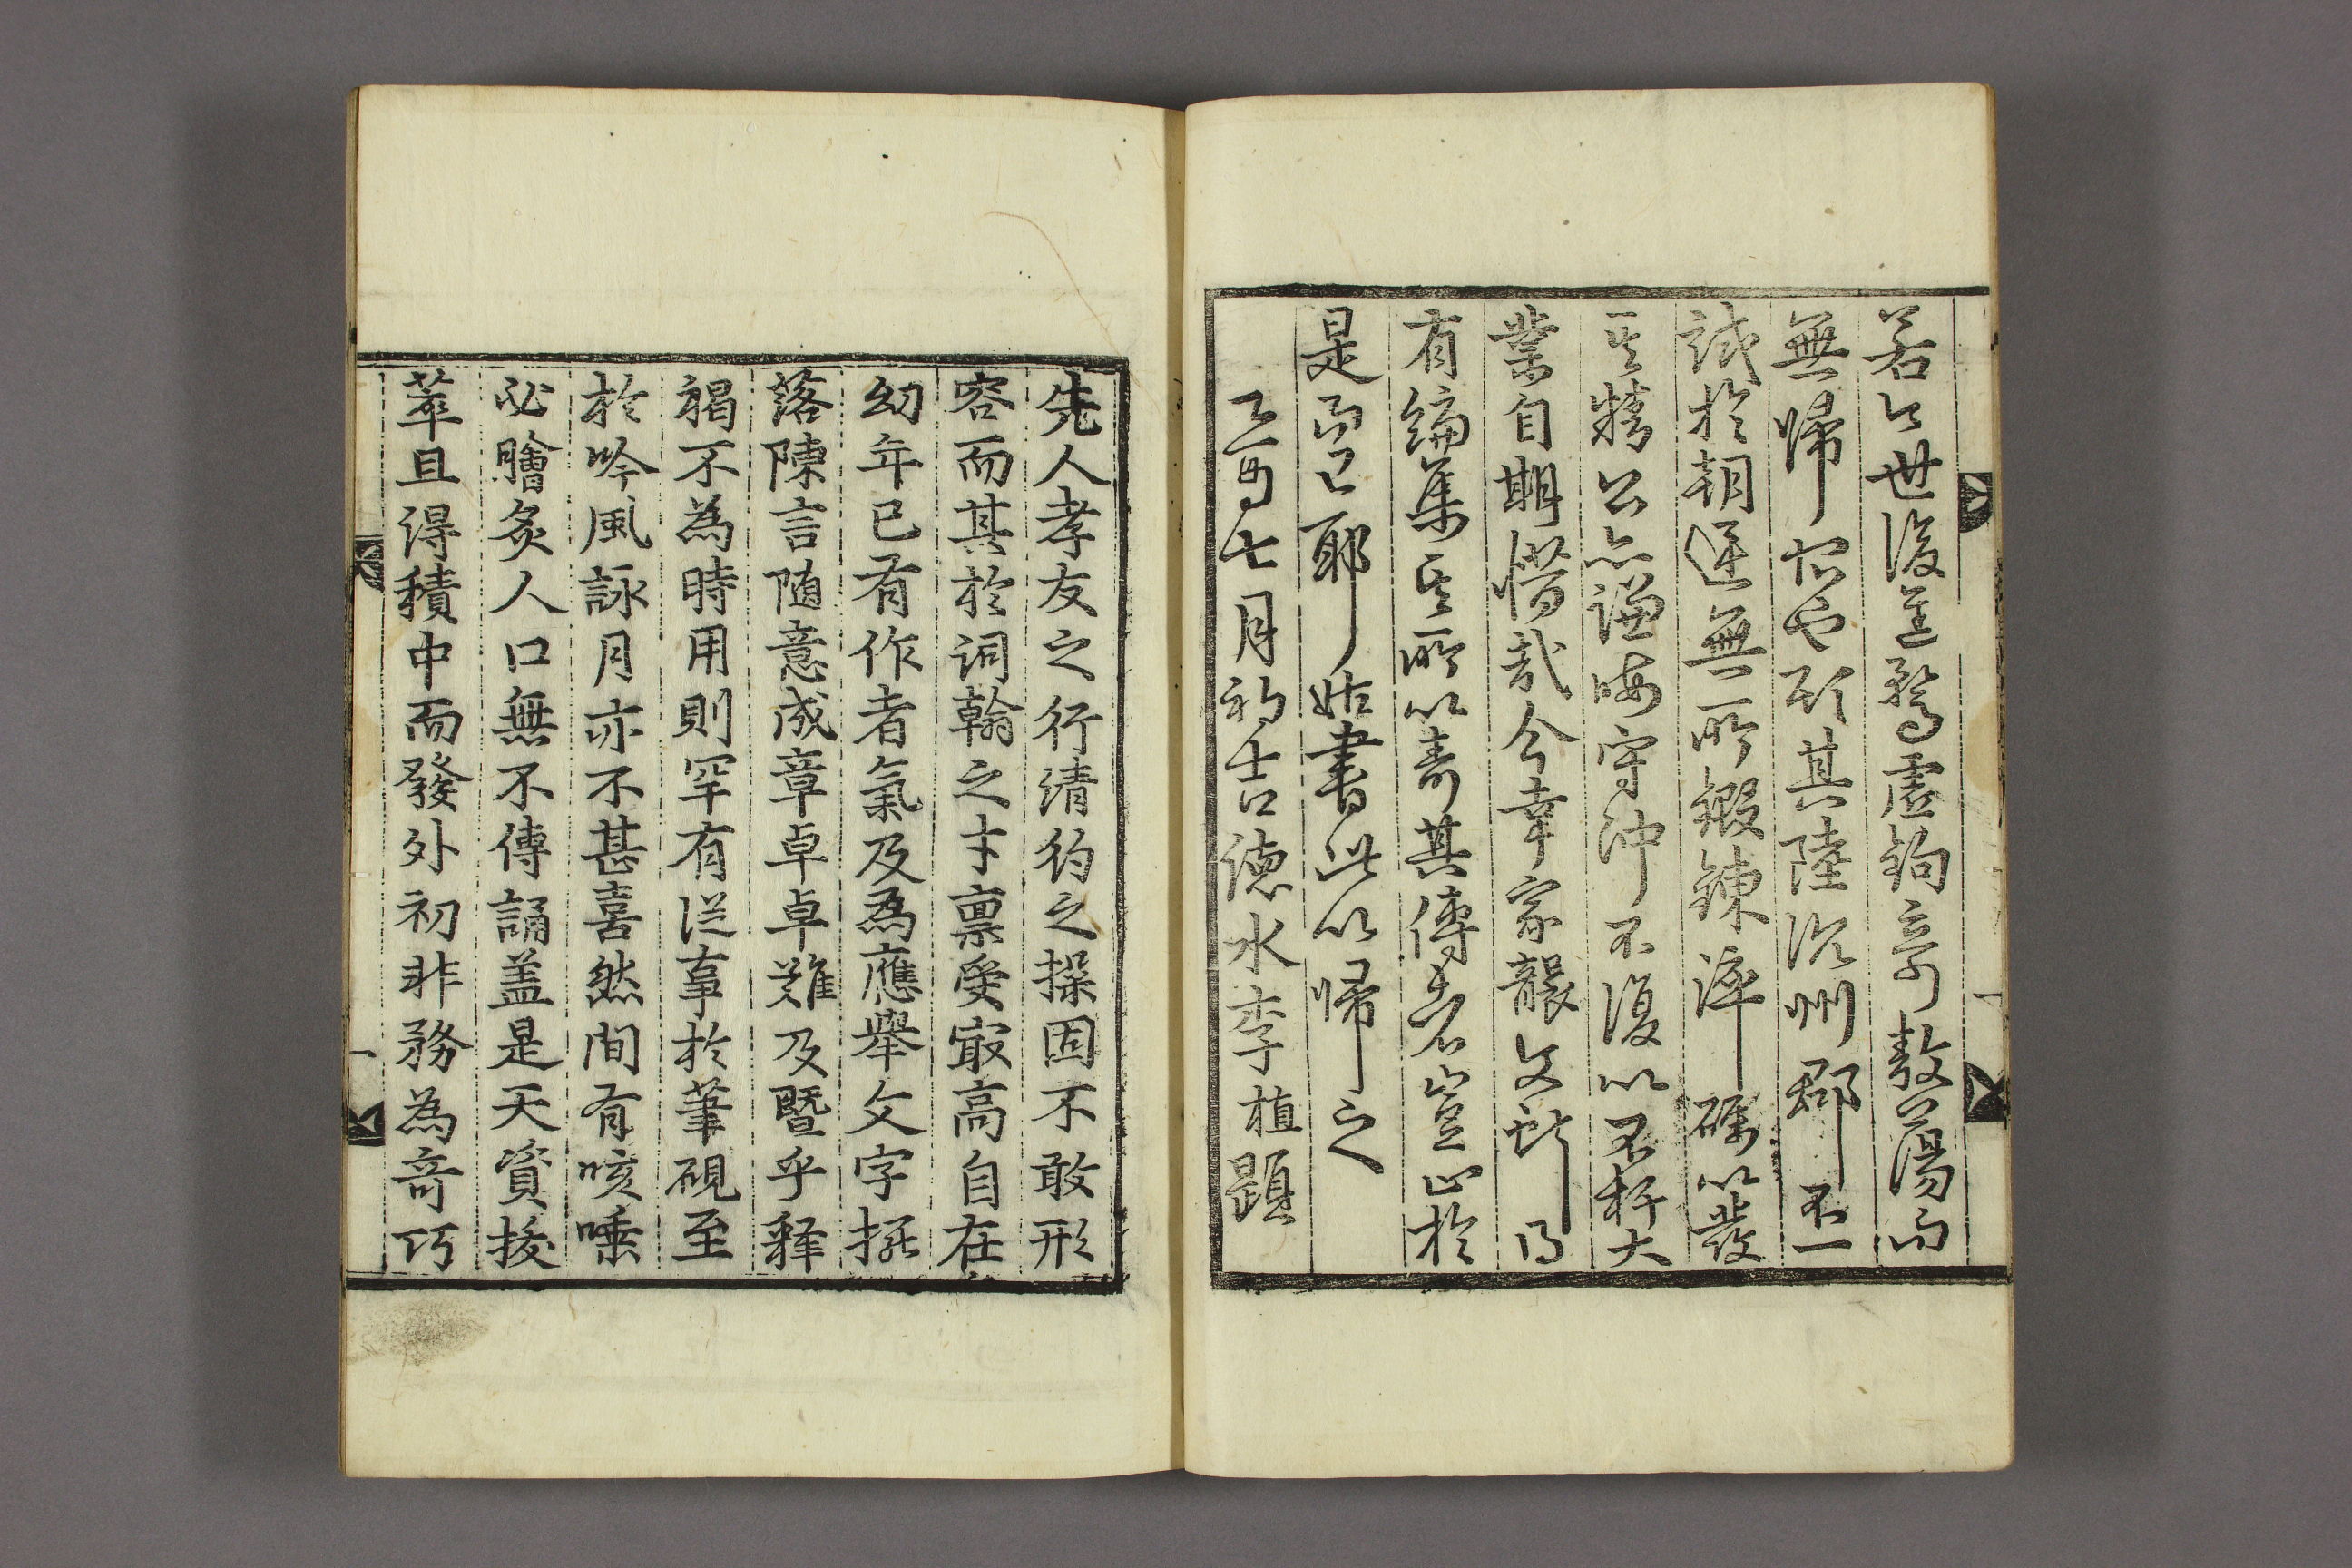 若今世後進騖虛鉤奇敖蕩而
無歸宿也耶其陸沉州郡不一
試於朝廷無所鍛鍊淬礪以發
其精公亦謙晦守沖不復以不朽大
業自期惜哉今幸家襲文獻乃
有編集其所以壽其傳者豈止於
是而已耶姑書此以歸之
乙酉七月初吉德水李植題
一
先人孝友之行清約之操固不敢形
容而其於詞翰之才稟受最高自在
幼年已有作者氣及為應舉文字擺
落陳言隨意成章卓卓難及暨乎釋
褐不為時用則罕有從事於筆硯至
於吟風詠月亦不甚喜然間有咳唾
必膾炙人口無不傳誦盖是天資拔
萃且得積中而發外初非務為奇巧
一